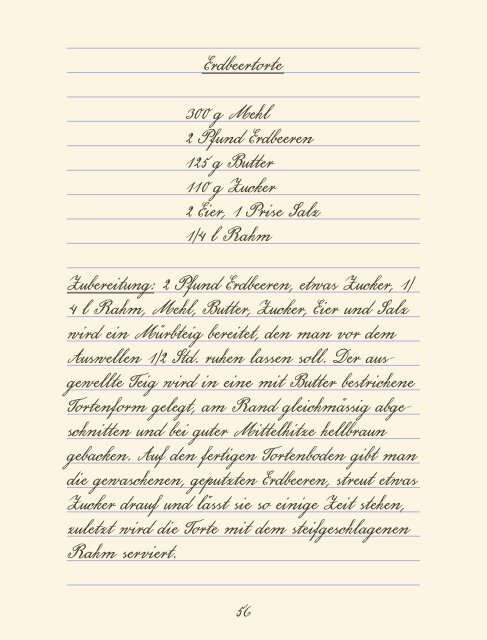 Erdbeertorte
300 g Mehl
2 Pfund Erdbeeren
125 g Butter
110 g Zucker
2 Eier, 1 Prise Salz
1/4 l Rahm
Zubereitung: 2 Pfund Erdbeeren, etwas Zucker, 1/
4 l Rahm, Mehl, Butter, Zucker, Eier und Salz
wird ein Mürbteig bereitet, den man vor dem
Auswellen 1/2 Std. ruhen lassen soll. Der aus-
gewellte Teig wird in eine mit Butter bestrichene
Tortenform gelegt, am Rand gleichmässig abge-
schnitten und bei guter Mittelhitze hellbraun
gebacken. Auf den fertigen Tortenboden gibt man
die gewaschenen, geputzten Erdbeeren, streut etwas
Zucker drauf und lässt sie so einige Zeit stehen,
zuletzt wird die Torte mit dem steifgeschlagenen
Rahm serviert.
56